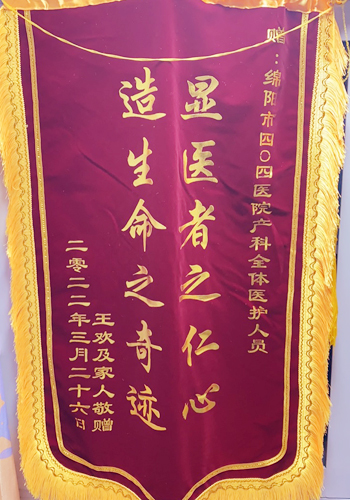 赠：绵阳市四〇四医院产科全体医护人员
显医者之仁心
造生命之奇迹
王欢及家人敬赠
二零二二年三月二十六日